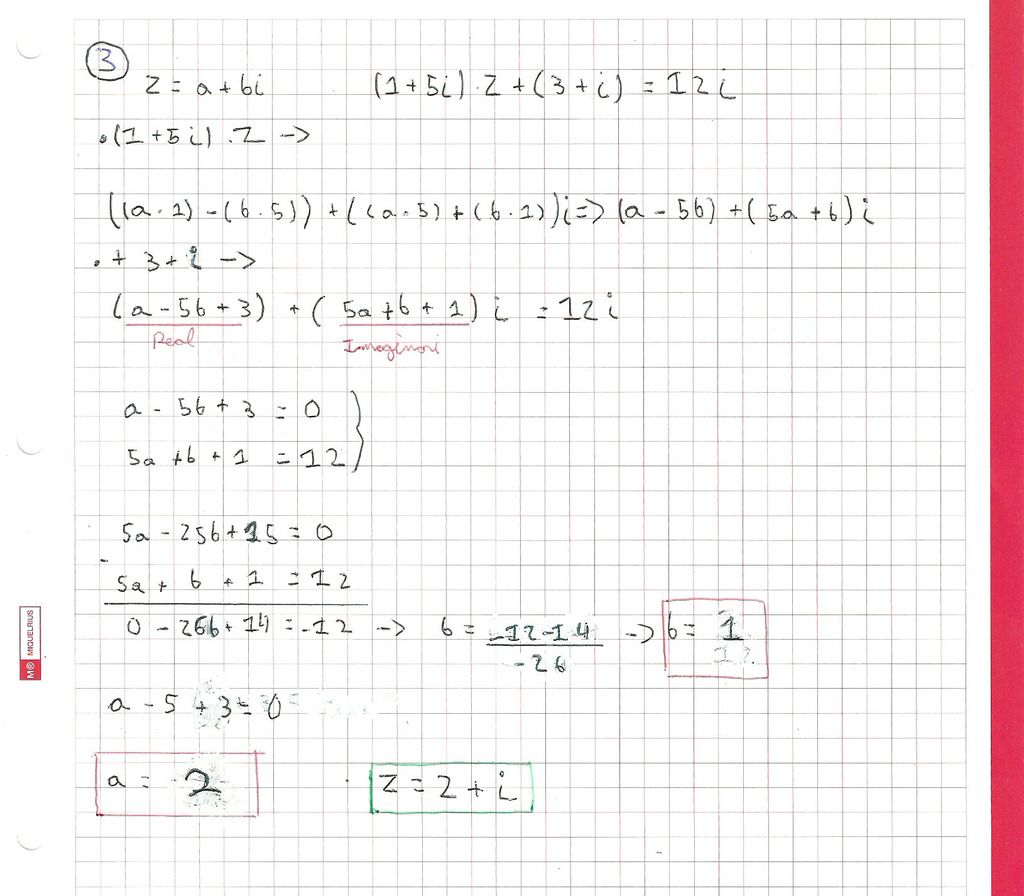 3
z = a + bi (1+5i) · z + (3+i) = 12i
· (1+5i) · z ->
((a·1) - (b·5)) + ((a·5) + (b·1))i => (a - 5b) + (5a + b)i
· + 3 + i ->
(a - 5b + 3) + (5a + b + 1) i = 12i
Real Imaginari
a - 5b + 3 = 0 }
5a + b + 1 = 12
5a - 25b + 15 = 0
- 5a + b + 1 = 12
0 - 26b + 14 = -12 -> b = -12-14 / -26 -> b = 1
MR MIQUELRIUS
a - 5 + 3 = 0
a = 2 z = 2 + i